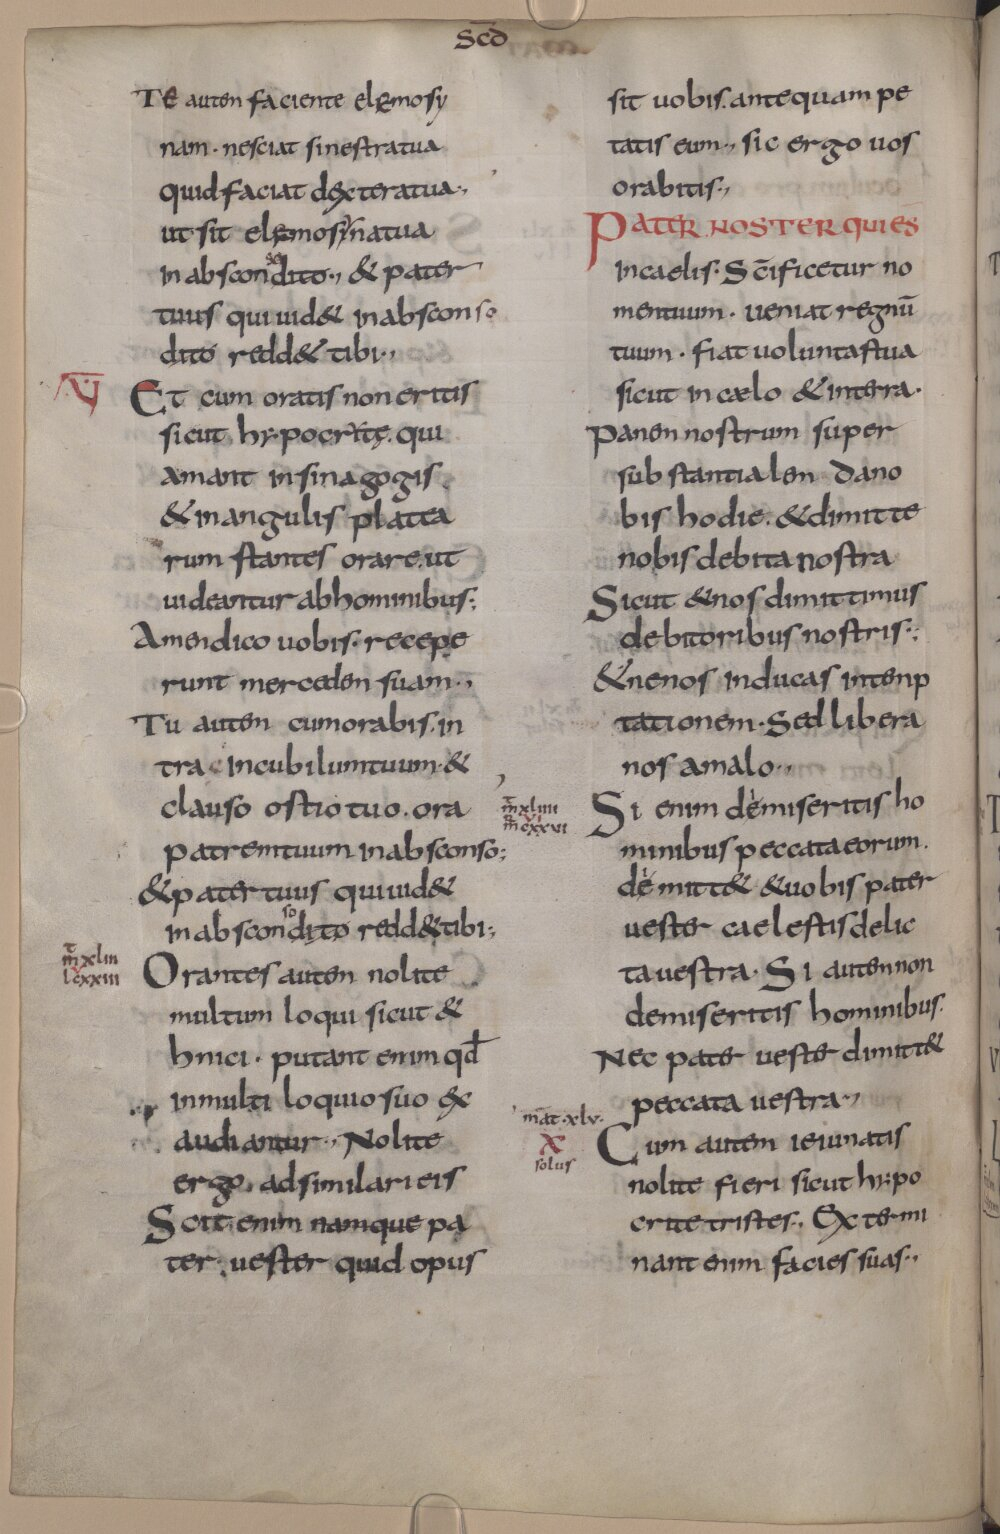 Scd
Te auten faciente elęmosy
nam. nesciat sinestra tua
quid faciat dexter a tua.,
ut sit elęmosyna tua
in abscon so dito., & pater
tuus qui uid& in abscon so
dito redd& tibi.,
Et cum oratis non eritis
sicut hypocritę. qui
amant in sinagogis.
& in angulis platea
rum stantes orare. ut
uideantur ab hominibus;
Amen dico uobis. recepe
runt merceden suam.,
Tu auten cum orabis. in
tra in cubilum tuum. &
clauso ostio tuo. ora
patrem tuum in absconso;
& pater tuus qui uid&
in abscon so dito redd& tibi;
m xliii
l cxxiii
Orantes auten nolite
multum loqui sicut &
hnici. putant enim qd
in multi loquio suo ex
audiantur., Nolite
ergo. adsimilari eis
Scit enim namque pa
ter. uester quid opus
sit uobis. ante quam pe
tatis eum., sic ergo uos
orabitis.,
Pater noster qui es
in caelis. Scificetur no
men tuum. ueniat regnū
tuum. fiat uoluntas tua
sicut in cælo & in terra.
Panen nostrum super
substantialen da no
bis hodie. & dimitte
nobis debita nostra
Sicut & nos dimittimus
debitoribus nostris;
& ne nos inducas in tenp
tationem. Sed libera
nos a malo.,
m xliiii
m cxxvi
Si enim demiseritis ho
minibus peccata eorum.
demitt& & uobis pater
uester caelestis delic
ta uestra. Si auten non
demiseritis hominibus.
Nec pater uester dimitt&
peccata uestra.,
mat. xlv.
X
solus
Cum autem ieiunatis
nolite fieri sicut hypo
crite tristes., Extermi
nant enim facies suas.,